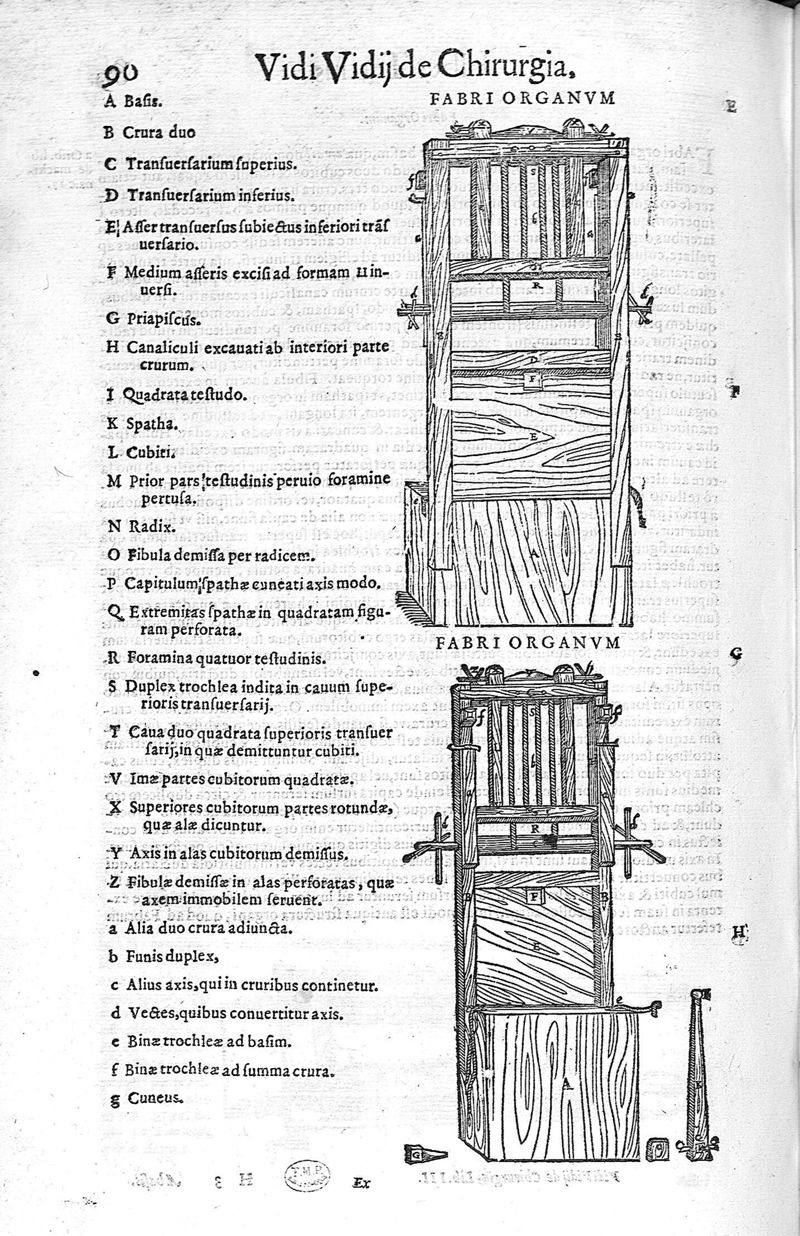 90
Vidi Vidij de Chirurgia,
A Basis.
B Crura duo
C Transuersarium superius.
D Transuersarium inferius.
E Asser transuersus subiectus inferiori trãs
uersario.
F Medium asseris excisi ad formam u in-
uersi.
G Priapiscus.
H Canaliculi excauati ab interiori parte
crurum.
I Quadrata testudo.
K Spatha.
L Cubiti.
M Prior pars testudinis peruio foramine
pertusa.
N Radix.
O Fibula demissa per radicem.
P Capitulum spathæ cuneati axis modo.
Q Extremitas spathæ in quadratam figu-
ram perforata.
R Foramina quatuor testudinis.
S Duplex trochlea indita in cauum supe-
rioris transuersarij.
T Caua duo quadrata superioris transuer
sarij, in quæ demittuntur cubiti.
V Imæ partes cubitorum quadratæ.
X Superiores cubitorum partes rotundæ,
quæ alæ dicuntur.
Y Axis in alas cubitorum demissus.
Z Fibulæ demissæ in alas perforatas, quæ
axem immobilem seruent.
a Alia duo crura adiuncta.
b Funis duplex,
c Alius axis, qui in cruribus continetur.
d Vectes, quibus conuertitur axis.
e Binæ trochleæ ad basim.
f Binæ trochleæ ad summa crura.
g Cuneus.
FABRI ORGANVM
S
b
a
R
d
B
D
F
E
A
e
FABRI ORGANVM
Y
C
S
f
b
R
d
B
F
B
E
e
A
G
Ex
E
F
G
H